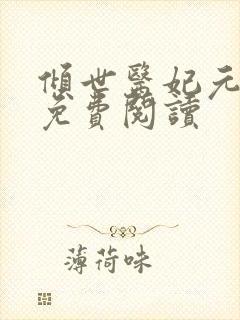 傾世醫妃元
免費閱讀
薄荷味